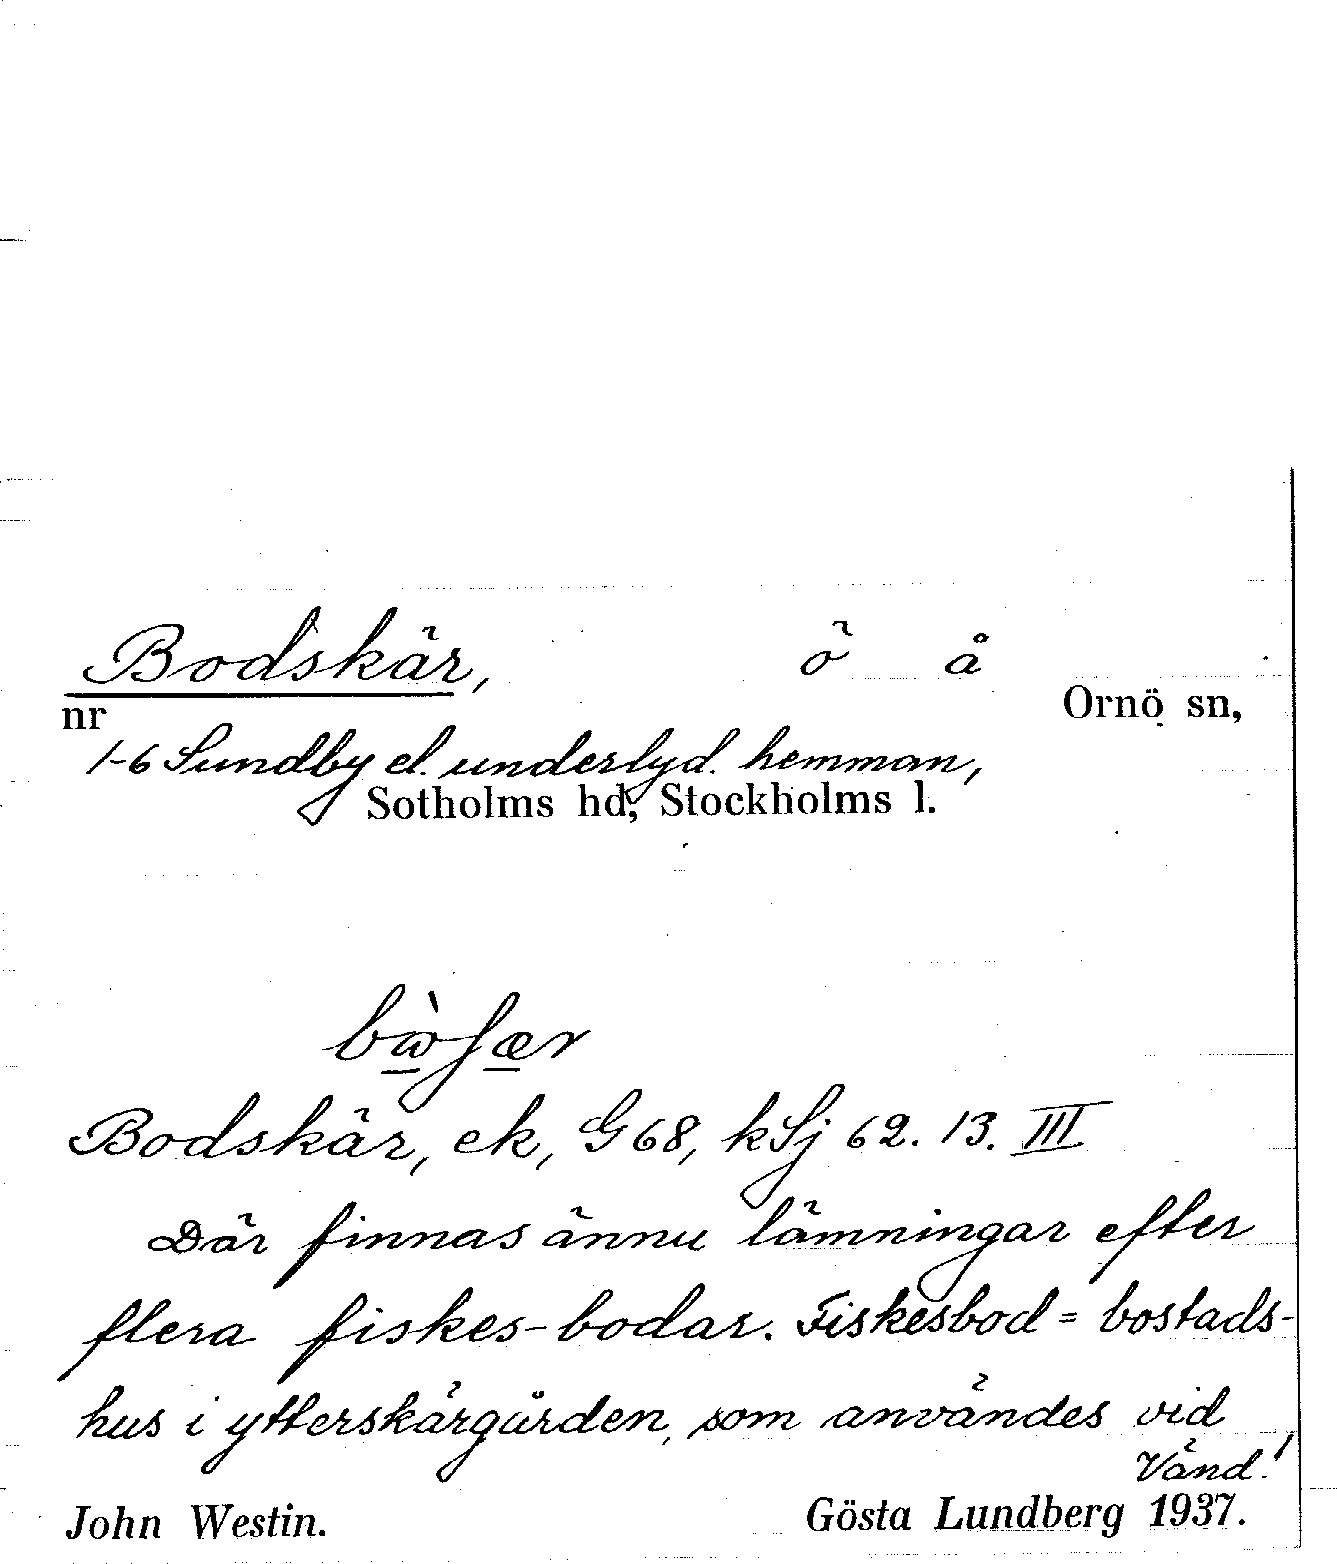 Bodskär, ö å
Ornö sn,
nr
1-6 Sundby el. underlyd. hemman,
Sotholms hd, Stockholms l.
Bodskär, ek, G68, kSj 62. 13. III
Där finnas ännu lämningar efter
flera fiskes-bodar. Fiskesbod = bostads-
hus i ytterskärgården, som användes vid
Vänd!
John Westin. Gösta Lundberg 1937.